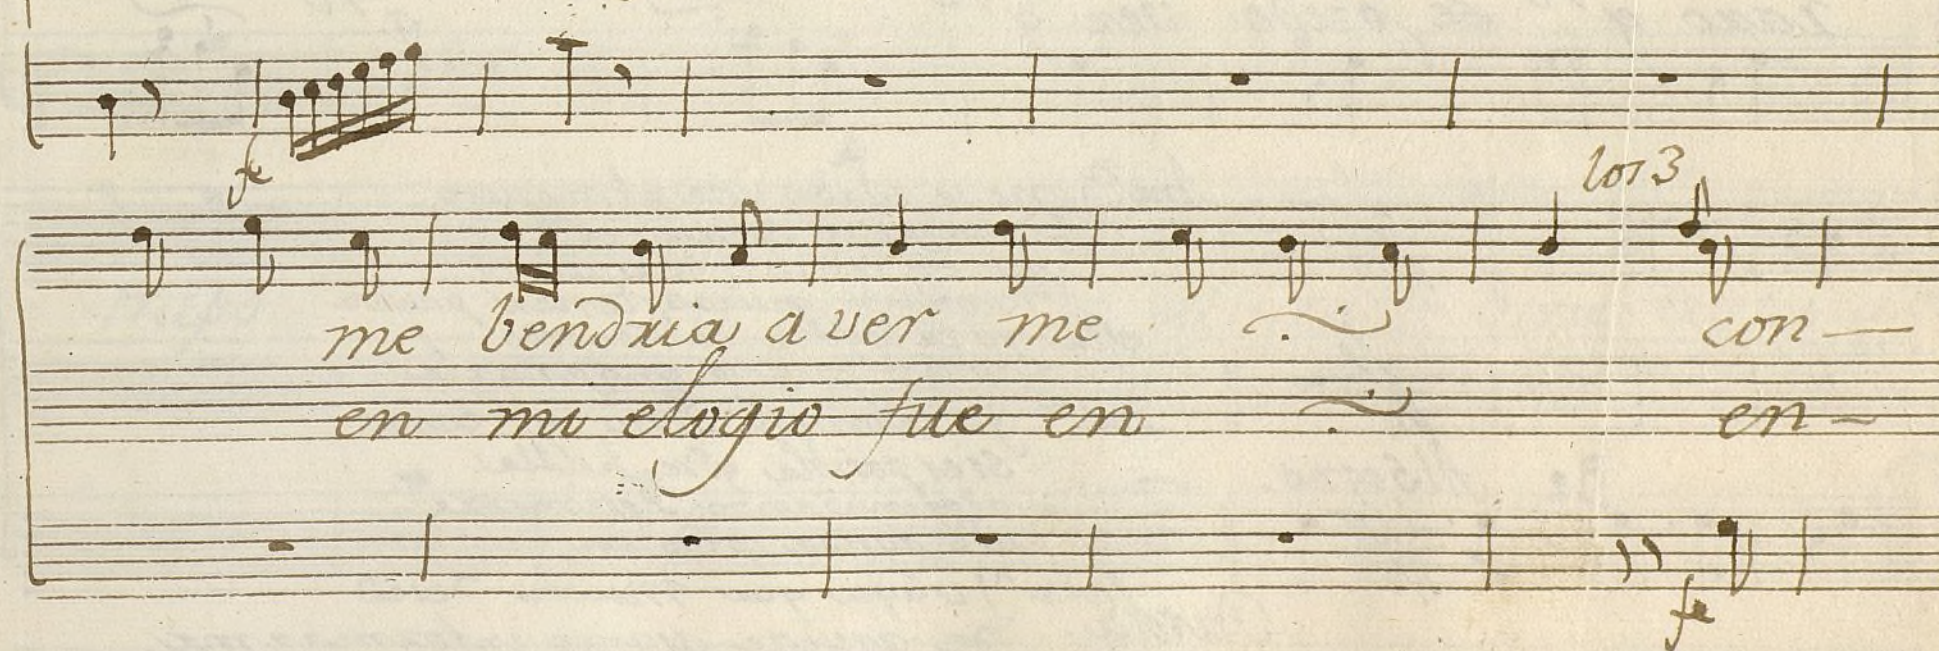 fe
los 3
me bendria a ver me con-
en mi elogio fue en en-
fe